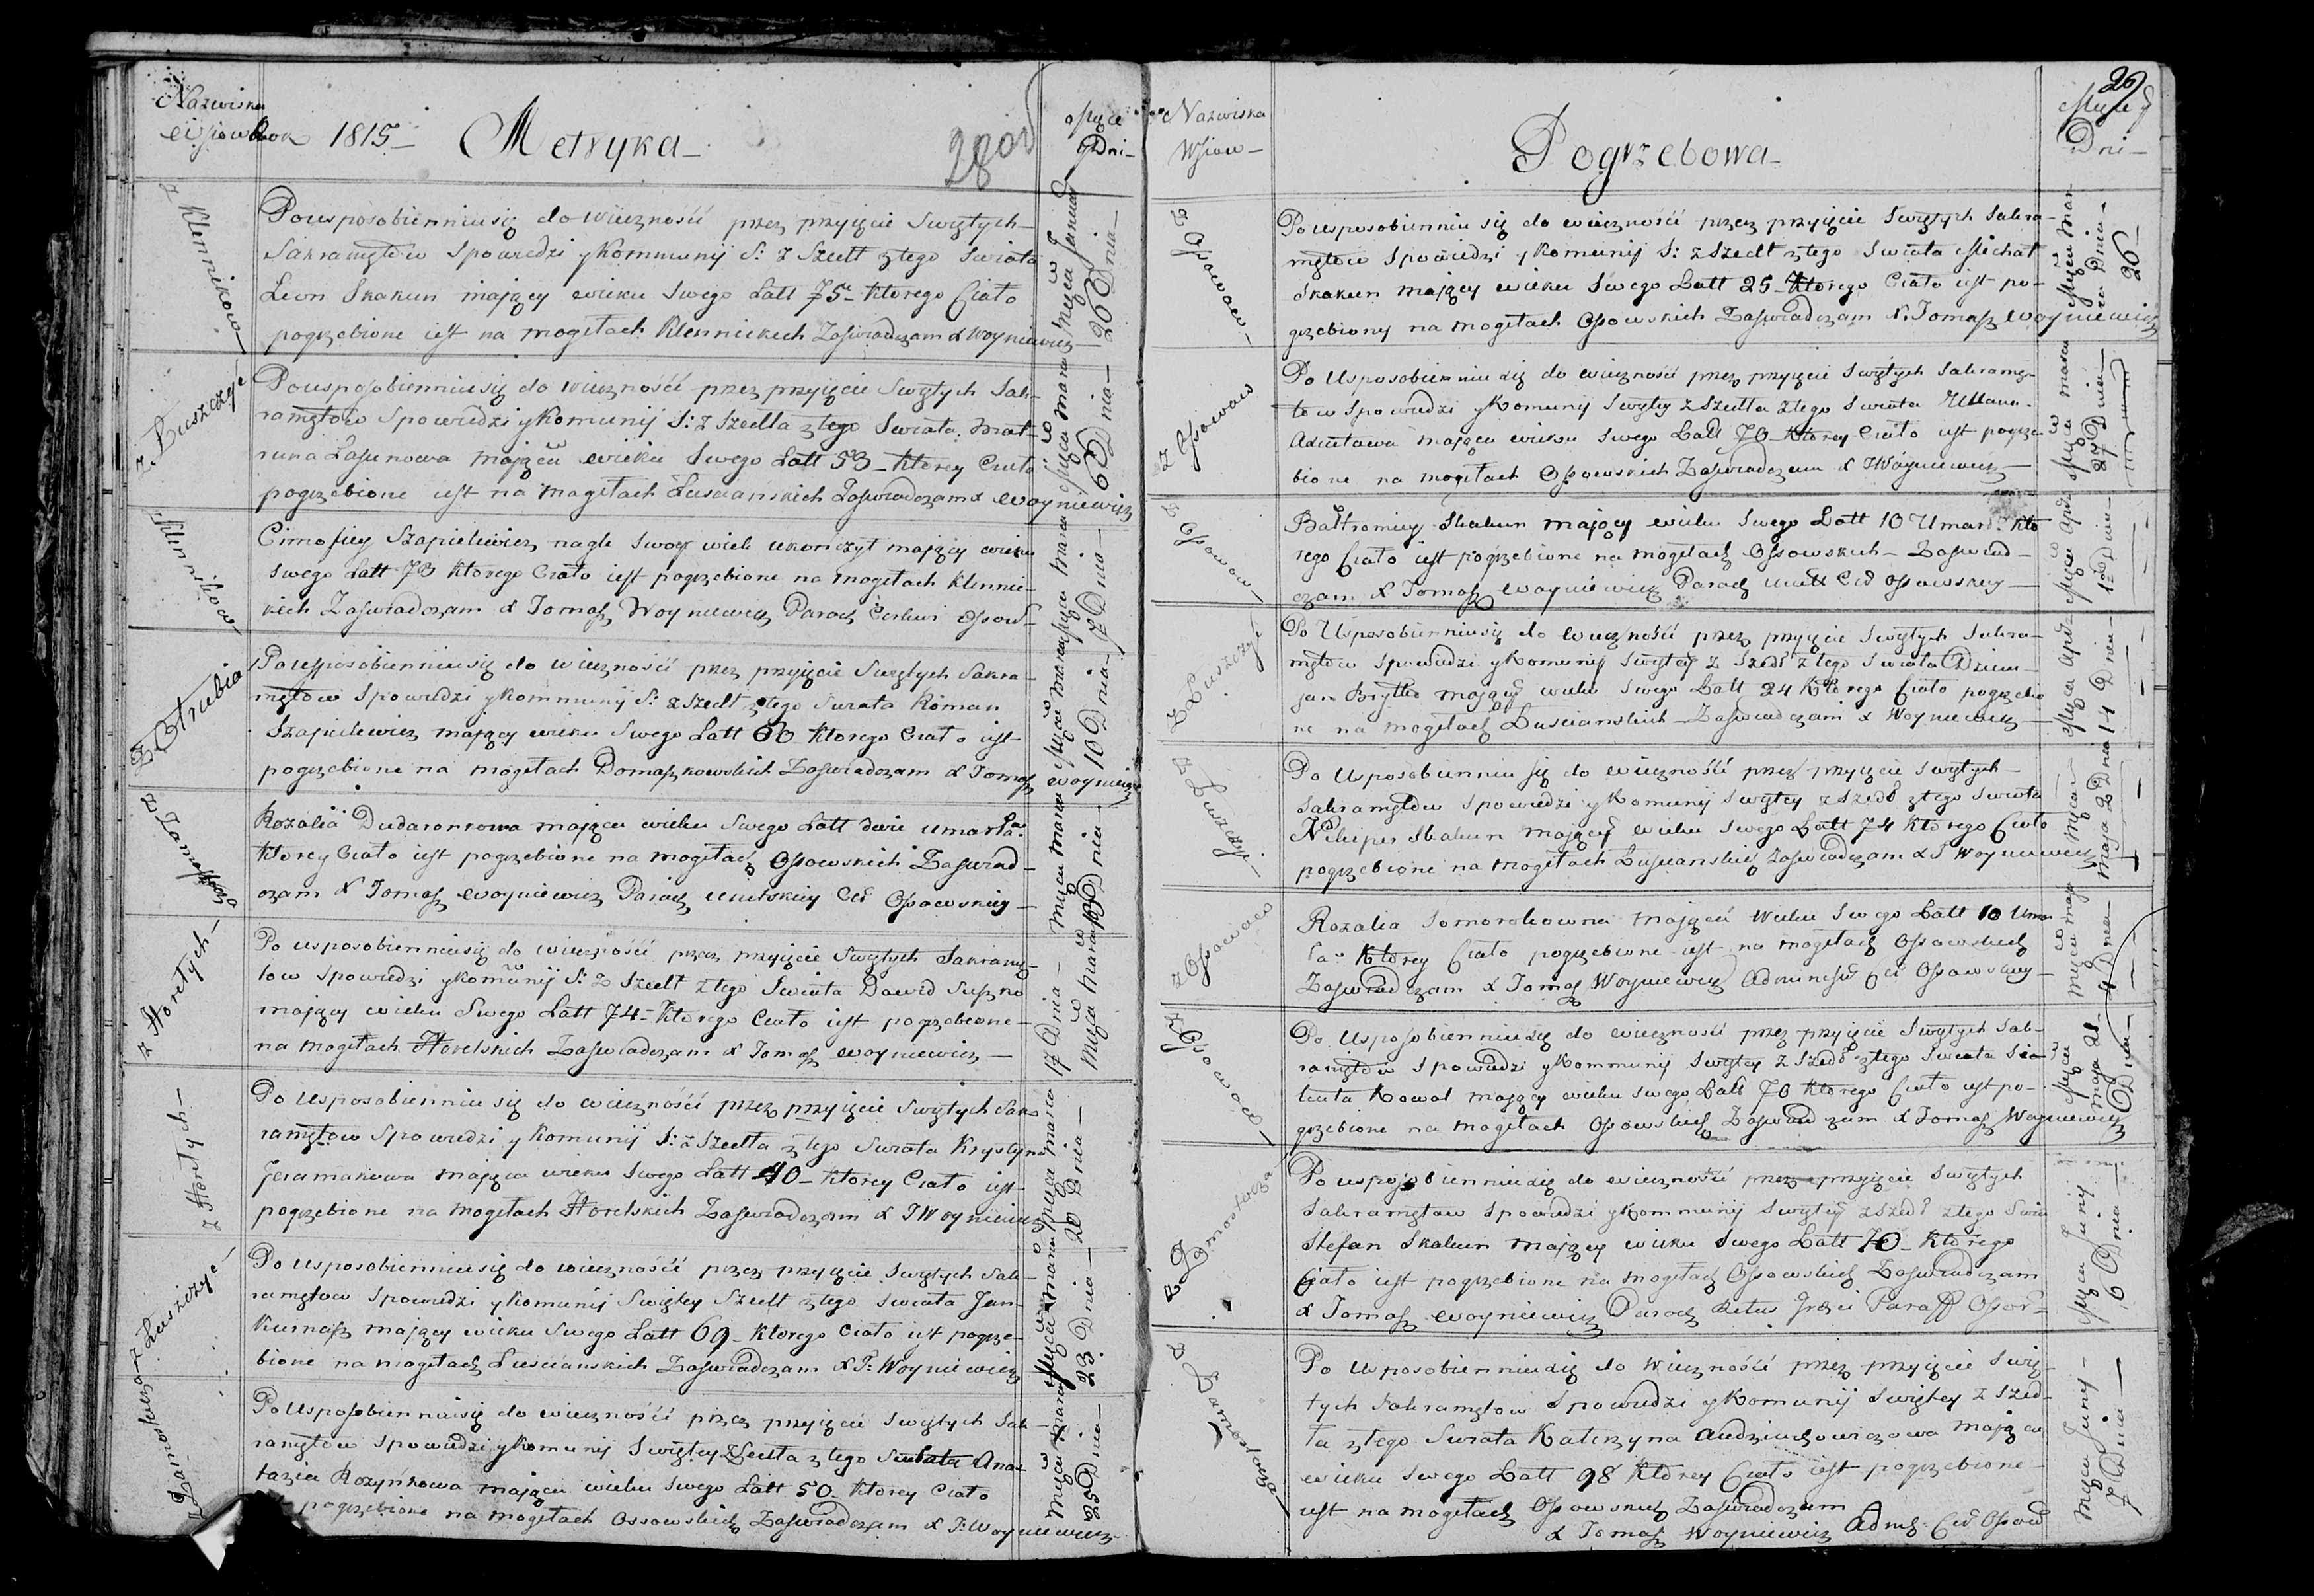 Nazwiska
Wsiow Rok 1815 — Metryka —
Dni —
z Klennikow —
Po usposobienniu się do wieczności przez przyięcie Swiętych
Sakramętow Spowiedzi y Kommunij S: z Szedł z tego Swiata
Leon Skakun maiący wieku Swego Latt 75 — Ktorego Ciało
pogrzebione iest na mogiłach Klennickich Zaswiadczam X Woyniewicz
26 Dnia —
z Łuszczyc —
Po usposobienniu się do wieczności przez przyięcie Swiętych Sak-
ramętow Spowiedzi y Komunij S: z Szedła z tego Swiata Mat-
runa Łasunowa maiąca wieku Swego Latt 53 — Ktorey Ciało
pogrzebione iest na mogiłach Łuscianskich Zaswiadczam X Woyniewicz
6 Dnia —
z Klennikow —
Cimofiey Szapielewicz nagle Swoy wiek ukończył maiący wieku
swego Latt 78 Ktorego Ciało iest pogrzebione na mogiłach Klennic-
kich Zaswiadczam X Tomasz Woyniewicz Paroch Cerkwi Ossow —
7 Dnia —
Po usposobienniu się do wieczności przez przyięcie Swiętych Sakra-
mętow Spowiedzi y Kommunij S: z Szedł z tego Swiata Roman
Szapielewicz maiący wieku Swego Latt 60 Ktorego Ciało iest
pogrzebione na mogiłach Domaszkowskich Zaswiadczam X Tomasz Woyniewicz
10 Dnia —
z Zamosza
Rozalia Dudaronkowa maiąca wieku Swego Latt dwie umarła
Ktorey Ciało iest pogrzebione na mogiłach Ossowskich Zaswiad-
czam X Tomasz Woyniewicz Paroch Ossowskiey —
17 Dnia —
z Horetych —
Po usposobienniu się do wieczności przez przyięcie Swiętych Sakramę-
tow Spowiedzi y Komunij S: z Szedł z tego Swiata Dawid Suszno
maiący wieku Swego Latt 74 — Ktorego Ciało iest pogrzebione —
na mogiłach Horetskich Zaswiadczam X Tomasz Woyniewicz —
z Horetych —
Po usposobienniu się do wieczności przez przyięcie Swiętych Sak-
ramętow Spowiedzi y Komunij S: z Szedła z tego Swiata Krystyna
Jeramakowa maiąca wieku Swego Latt 40 — Ktorey Ciało iest
pogrzebione na mogiłach Horetskich Zaswiadczam X T Woyniewicz
20 Dnia —
z Łuszczyc —
Po usposobienniu się do wieczności przez przyięcie Swiętych Sak-
ramętow Spowiedzi y Komunij Swiętey Szedł z tego Swiata Jan
maiący wieku Swego Latt 69 — Ktorego Ciało iest pogrze-
bione na mogiłach Łuscianskich Zaswiadczam X T: Woyniewicz
23 Dnia —
Po usposobienniu się do wieczności przez przyięcie Swiętych Sak-
ramętow Spowiedzi y Komunij Swiętey z Szedła z tego Swiata Anas-
tazia Kozyńkowa maiąca wieku Swego Latt 50 — Ktorey Ciało
pogrzebione na mogiłach Ossowskich Zaswiadczam X T: Woyniewicz
25 Dnia —
26
Nazwiska
Wsiow —
Pogrzebowa —
Dni —
z Ossowow —
Po usposobienniu się do wieczności przez przyięcie Swiętych Sakra-
mętow Spowiedzi y Komunij S: z Szedł z tego Swiata Michał
Skakun maiący wieku Swego Latt 25 — Ktorego Ciało iest po-
grzebiony na mogiłach Ossowskich Zaswiadczam X. Tomasz Woyniewicz
26 —
z Ossowow
Po Usposobienniu się do wieczności przez przyięcie Swiętych Sakramę-
tow Spowiedzi y Komunij Swiętey z Szedła z tego Swiata
maiąca wieku Swego Latt 70 Ktorey Ciało iest pogrze-
bione na mogiłach Ossowskich Zaswiadczam X T Woyniewicz —
27 Dnia —
z Ossowow —
Bałtromiey Skakun maiący wieku Swego Latt 10 Umarł Kto
rego Ciało iest pogrzebione na mogiłach Ossowskich — Zaswiad-
czam X Tomasz Woyniewicz Paroch Ossowskiey —
z Łuszczyc —
Po Usposobienniu się do wieczności przez przyięcie Swiętych Sakra-
mętow Spowiedzi y Komunij Swiętey z Szedł z tego Swiata Dziem-
jan Brytko maiący wieku Swego Latt 24 Ktorego Ciało pogrzebio
ne na mogiłach Łuscianskich Zaswiadczam X Woyniewicz —
14 Dnia —
z Łuszczyc —
Po Usposobienniu się do wieczności przez przyięcie Swiętych —
Sakramętow Spowiedzi y Komunij Swiętey z Szedł z tego Swiata
Nikiper Skakun maiący wieku Swego Latt 74 Ktorego Ciało
pogrzebione na mogiłach Łuscianskich Zaswiadczam X T Woyniewicz
Maja 2 Dnia
z Ossowow
Rozalia maiąca wieku Swego Latt 10 Umar
ła — Ktorey Ciało pogrzebione iest na mogiłach Ossowskich
Zaswiadczam X Tomasz Woyniewicz Ossowskiey —
4 Dnia —
z Ossowow —
Po Usposobienniu się do wieczności przez przyięcie Swiętych Sak-
ramętow Spowiedzi y Kommunij Swiętey z Szedł z tego Swiata
Kowal maiący wieku swego Latt 70 Ktorego Ciało iest po-
grzebione na mogiłach Ossowskich Zaswiadczam X Tomasz Woyniewicz
6 Dnia —
z Zamosza
Po usposobienniu się do wieczności przez przyięcie Swiętych
Sakramętow Spowiedzi y Kommunij Swiętey z Szedł z tego Swia
Stefan Skakun maiący wieku Swego Latt 70 — Ktorego
Ciało iest pogrzebione na mogiłach Ossowskich Zaswiadczam
X Tomasz Woyniewicz Paroch
Juny
6 Dnia —
Po Usposobienniu się do Wieczności przez przyięcie Swię-
tych Sakramętow Spowiedzi y Komunij Swiętey z Szed-
ła z tego Swiata Katerzyna maiąca
wieku Swego Latt 98 Ktorey Ciało iest pogrzebione —
iest na mogiłach Ossowskich Zaswiadczam
X Tomasz Woyniewicz
Juny —
7 Dnia —